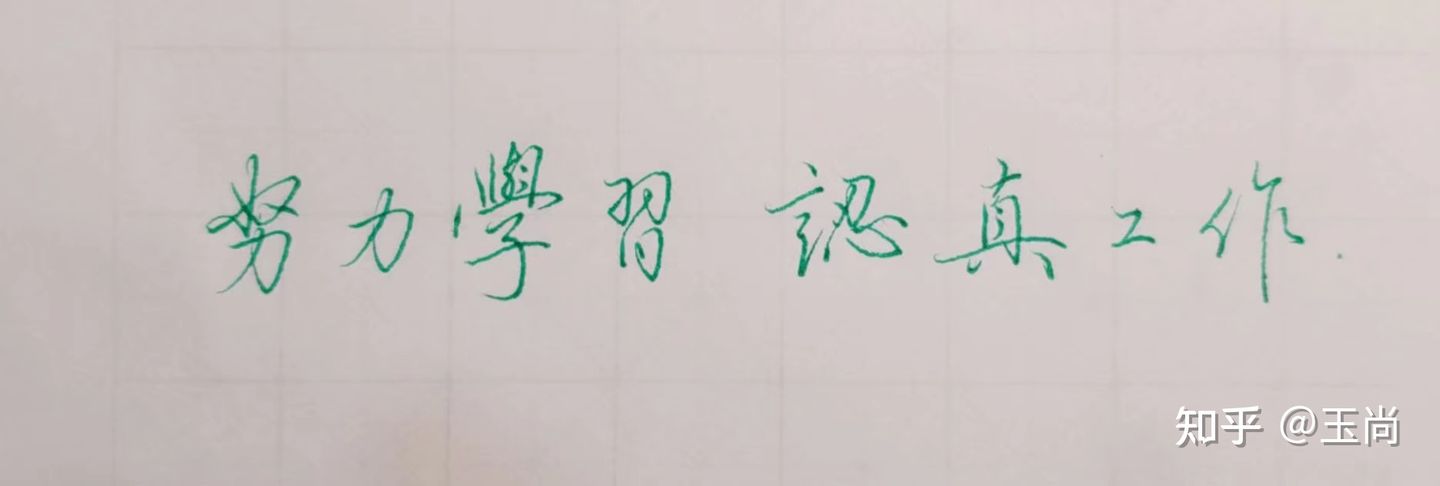 努力學習 認真工作.
知乎 @玉尚